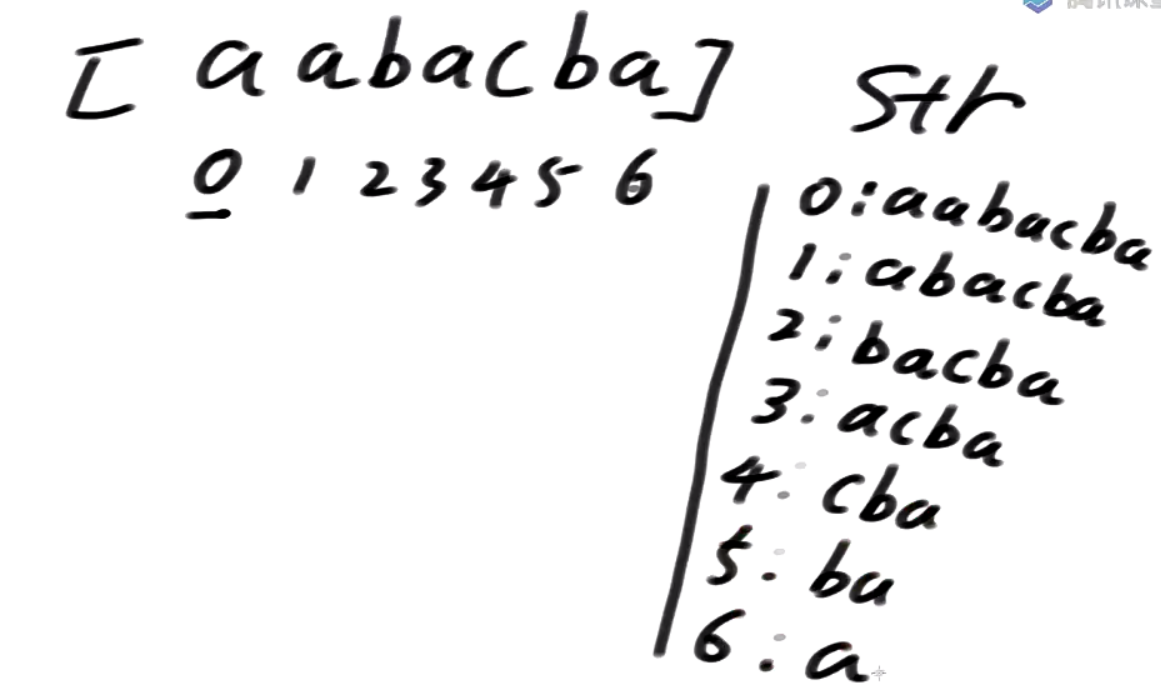 [ a a b a c b a ]
0 1 2 3 4 5 6
str
0: aabacba
1: abacba
2: bacba
3: acba
4: cba
5: ba
6: a